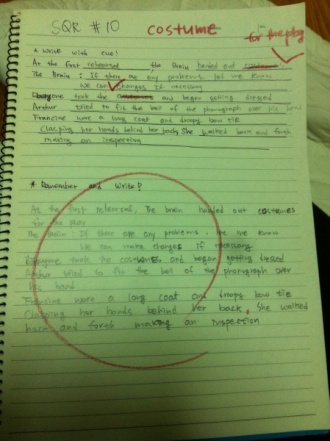 SQR #10 costume
* Write with cue!
for the play
At the first rehearsal the Brain handed out
The Brain : If there are any problems let me know
We can changes if necessary
Everyone took the and began getting dressed
Arthur tried to fit the ball of the phonograph over his head
Francine wore a long coat and droopy bow tie
Clasping her hands behind her back, She walked back and forth
making an inspection
* Remember and Write!
At the first rehearsal, The Brain handed out costumes
for the play
The Brain: If there are any problems, let we know
We can make changes if necessary
Everyone took the costumes and began getting dressed
Arthur tried to fit the ball of the phonograph over
his head
Francine wore a long coat and droopy bow tie
Clasping her hands behind her back. She walked
back and forth making an inspection